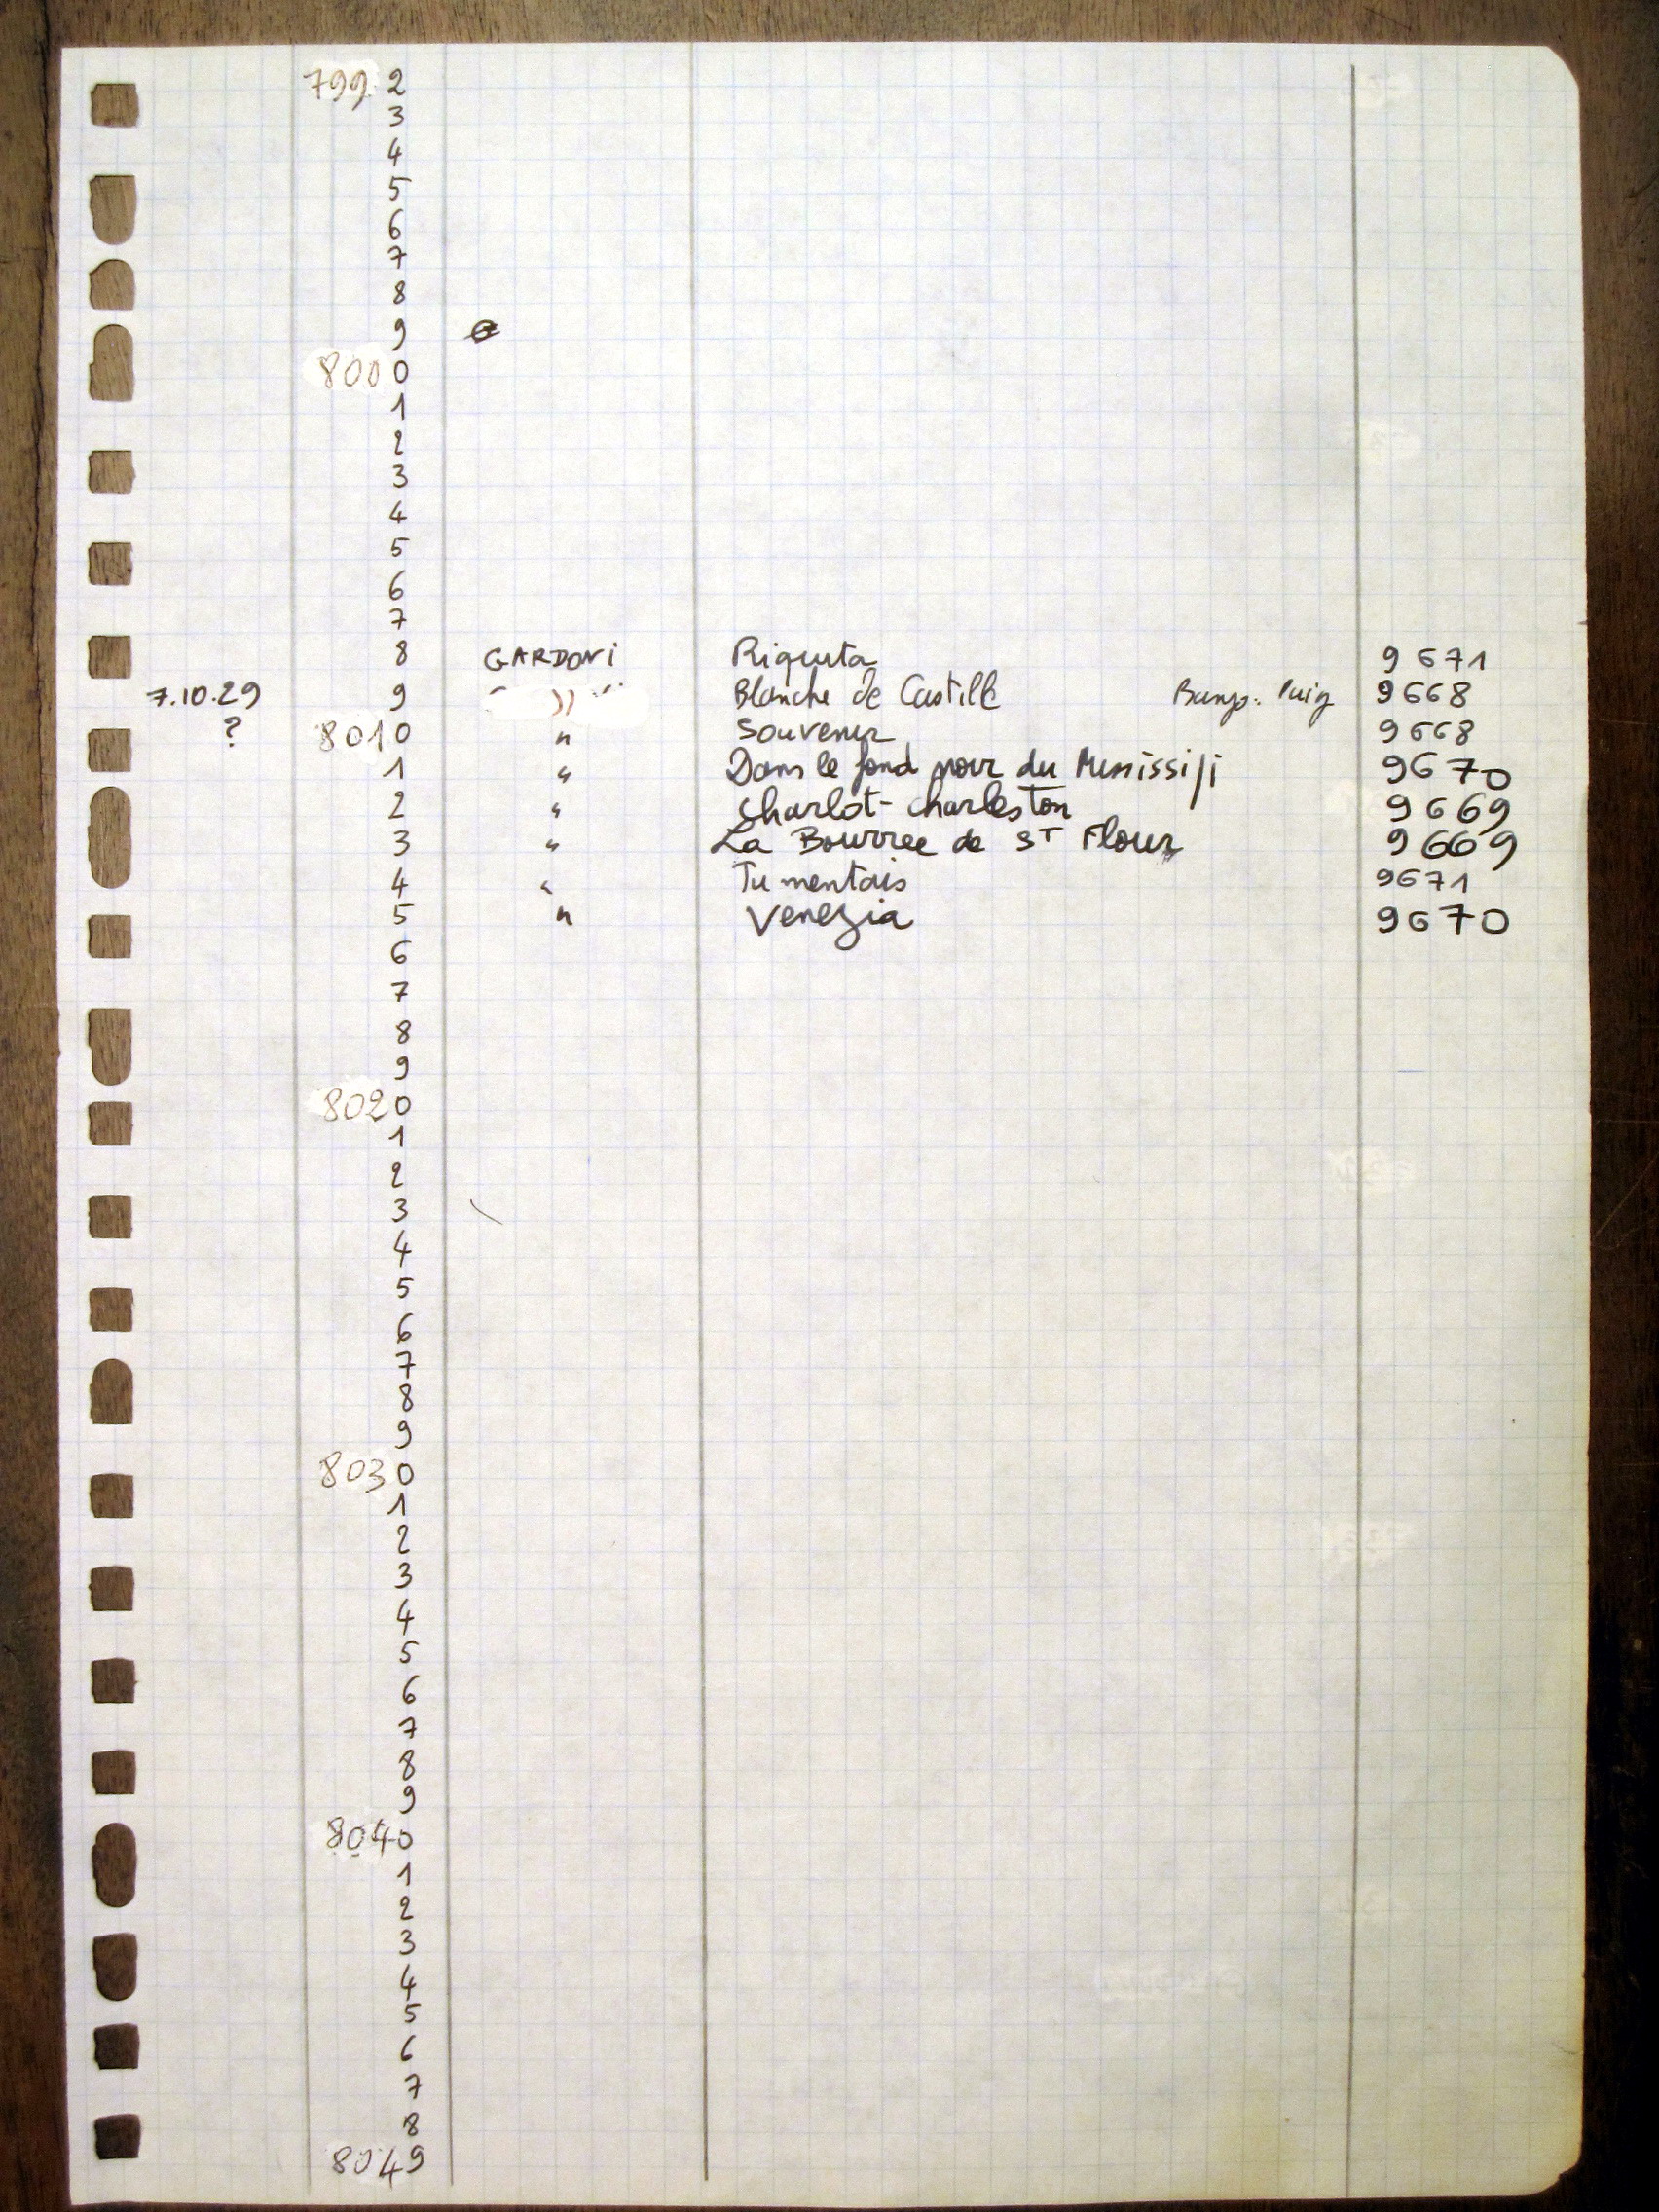 7992
3
4
5
6
7
8
9
8000
1
2
3
4
5
6
7
8 GARDONI Riquita 9671
7.10.29 9 " Blanche de Castille Banjo: Puig 9668
? 8010 " Souvenir 9668
1 " Dans le fond noir du Mississipi 9670
2 " Charlot-Charleston 9669
3 " La Bourree de ST Flour 9669
4 " Tu mentais 9671
5 " Venezia 9670
6
7
8
9
8020
1
2
3
4
5
6
7
8
9
8030
1
2
3
4
5
6
7
8
9
8040
1
2
3
4
5
6
7
8
8049